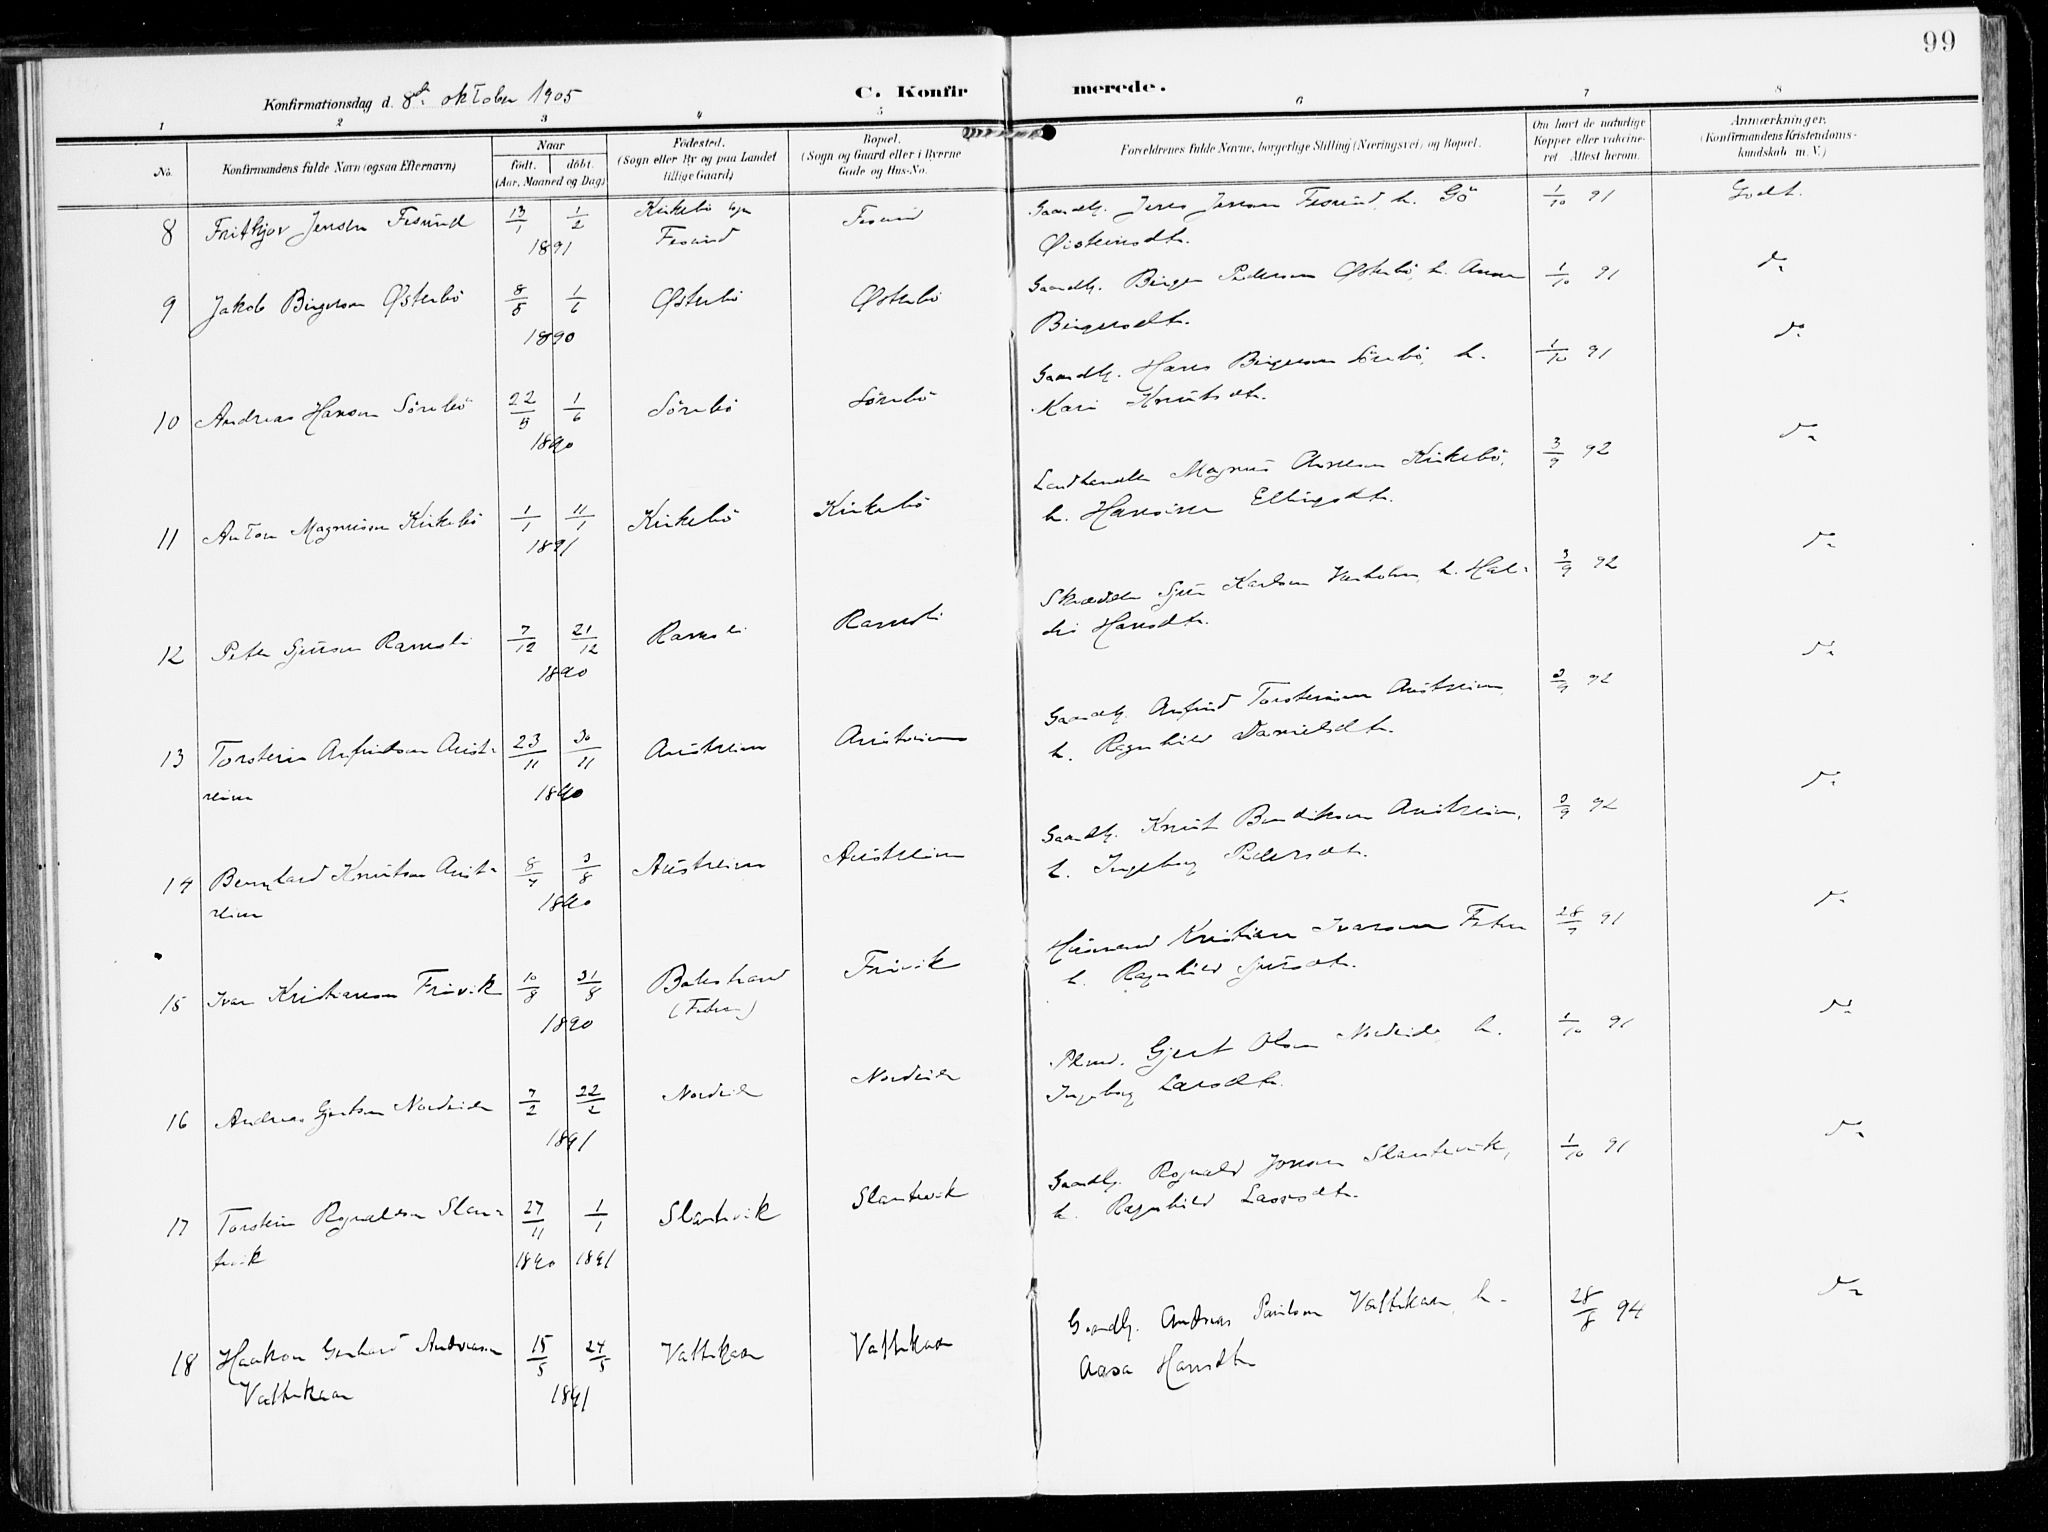 99
Konfirmationsdag d. 8de oktober 1905
C. Konfirmerede.
1 2 3 4 5 6 7 8
No. Konfirmandens fulde Navn (ogsaa Efternavn) Naar født. døbt. (Aar, Maaned og Dag) Fødested. (Sogn eller By og paa Landet tillige Gaard) Bopæl. (Sogn og Gaard eller i Byerne Gade og Hus-No. Forældrenes fulde Navne, borgerlige Stilling (Næringsvei) og Bopæl. Om havt de naturlige Kopper eller vaccineret Attest herom. Anmærkninger. (Konfirmandens Kristendomskundskab m. V.)
8 Frithjov Jensen Fesund 13/1 1/2 Kirkebø sogn Fesund Gaardbr. Jens Jensen Fesund, h. Gö 1/10 91 Godt.
1891 Fesund Øisteinsdtr.
9 Jakob Birgerson Østerbö 8/5 1/6 Østerbö Østerbö Gaardbr. Birger Pederson Østerbö, h. Anna 1/10 91 do
1890 Birgersdtr.
10 Andreas Hanson Sörebö 22/5 1/6 Sörebö Sörebö Gaardbr. Hans Birgerson Sörebö, h. 1/10 91 do
1890 Kari Knutsdtr.
11 Anton Magnuson Kirkebö 1/1 11/1 Kirkebö Kirkebö Landhandler Magnus Kirkebö, 3/9 92 do
1891 h. Hansine Ellingsdtr.
12 Peter Sjurson Ramsli 7/12 21/12 Ramsli Ramsli Skrædder Sjur Karlson h. Hal- 3/9 92 do
1890 Hansdtr.
13 Torstein Arfindson Aust- 23/11 30/11 Austreim Austreim Gaardbr. Arfind Torsteinson Austreim 3/9 92 do
reim 1890 h. Ragnhild Danielsdtr.
14 Bernhard Knutson Aust- 8/7 3/8 Austreim Austreim Gaardbr. Knut Bendikson Austreim, 3/9 92 do
reim 1890 h. Ingeborg Pedersdtr.
15 Ivar Kristianson Frivik 10/8 31/8 Balestrand Frivik Husmand Kristian Ivarson 28/9 91 do
1890 h. Ragnhild Sjursdtr.
16 Andreas Gjertson Nordeide 7/2 22/2 Nordeide Nordeide Plmd. Gjert Olson Nordeide, h. 1/10 91 do
1891 Ingeborg Larsdtr.
17 Torstein Rognaldson Slan- 27/11 1/1 Slantevik Slantevik Gaardbr. Rognald Jonson Slantevik, 1/10 91 do
tevik 1890 1891 h. Ragnhild Lassesdtr.
18 Haakon Gerhard Andreasen 15/5 24/5 Vattekaar Vattekaar Gaardbr. Andreas Paulson Vattekaar, h. 28/8 94 do
Vattekaar 1891 Aasa Hansdtr